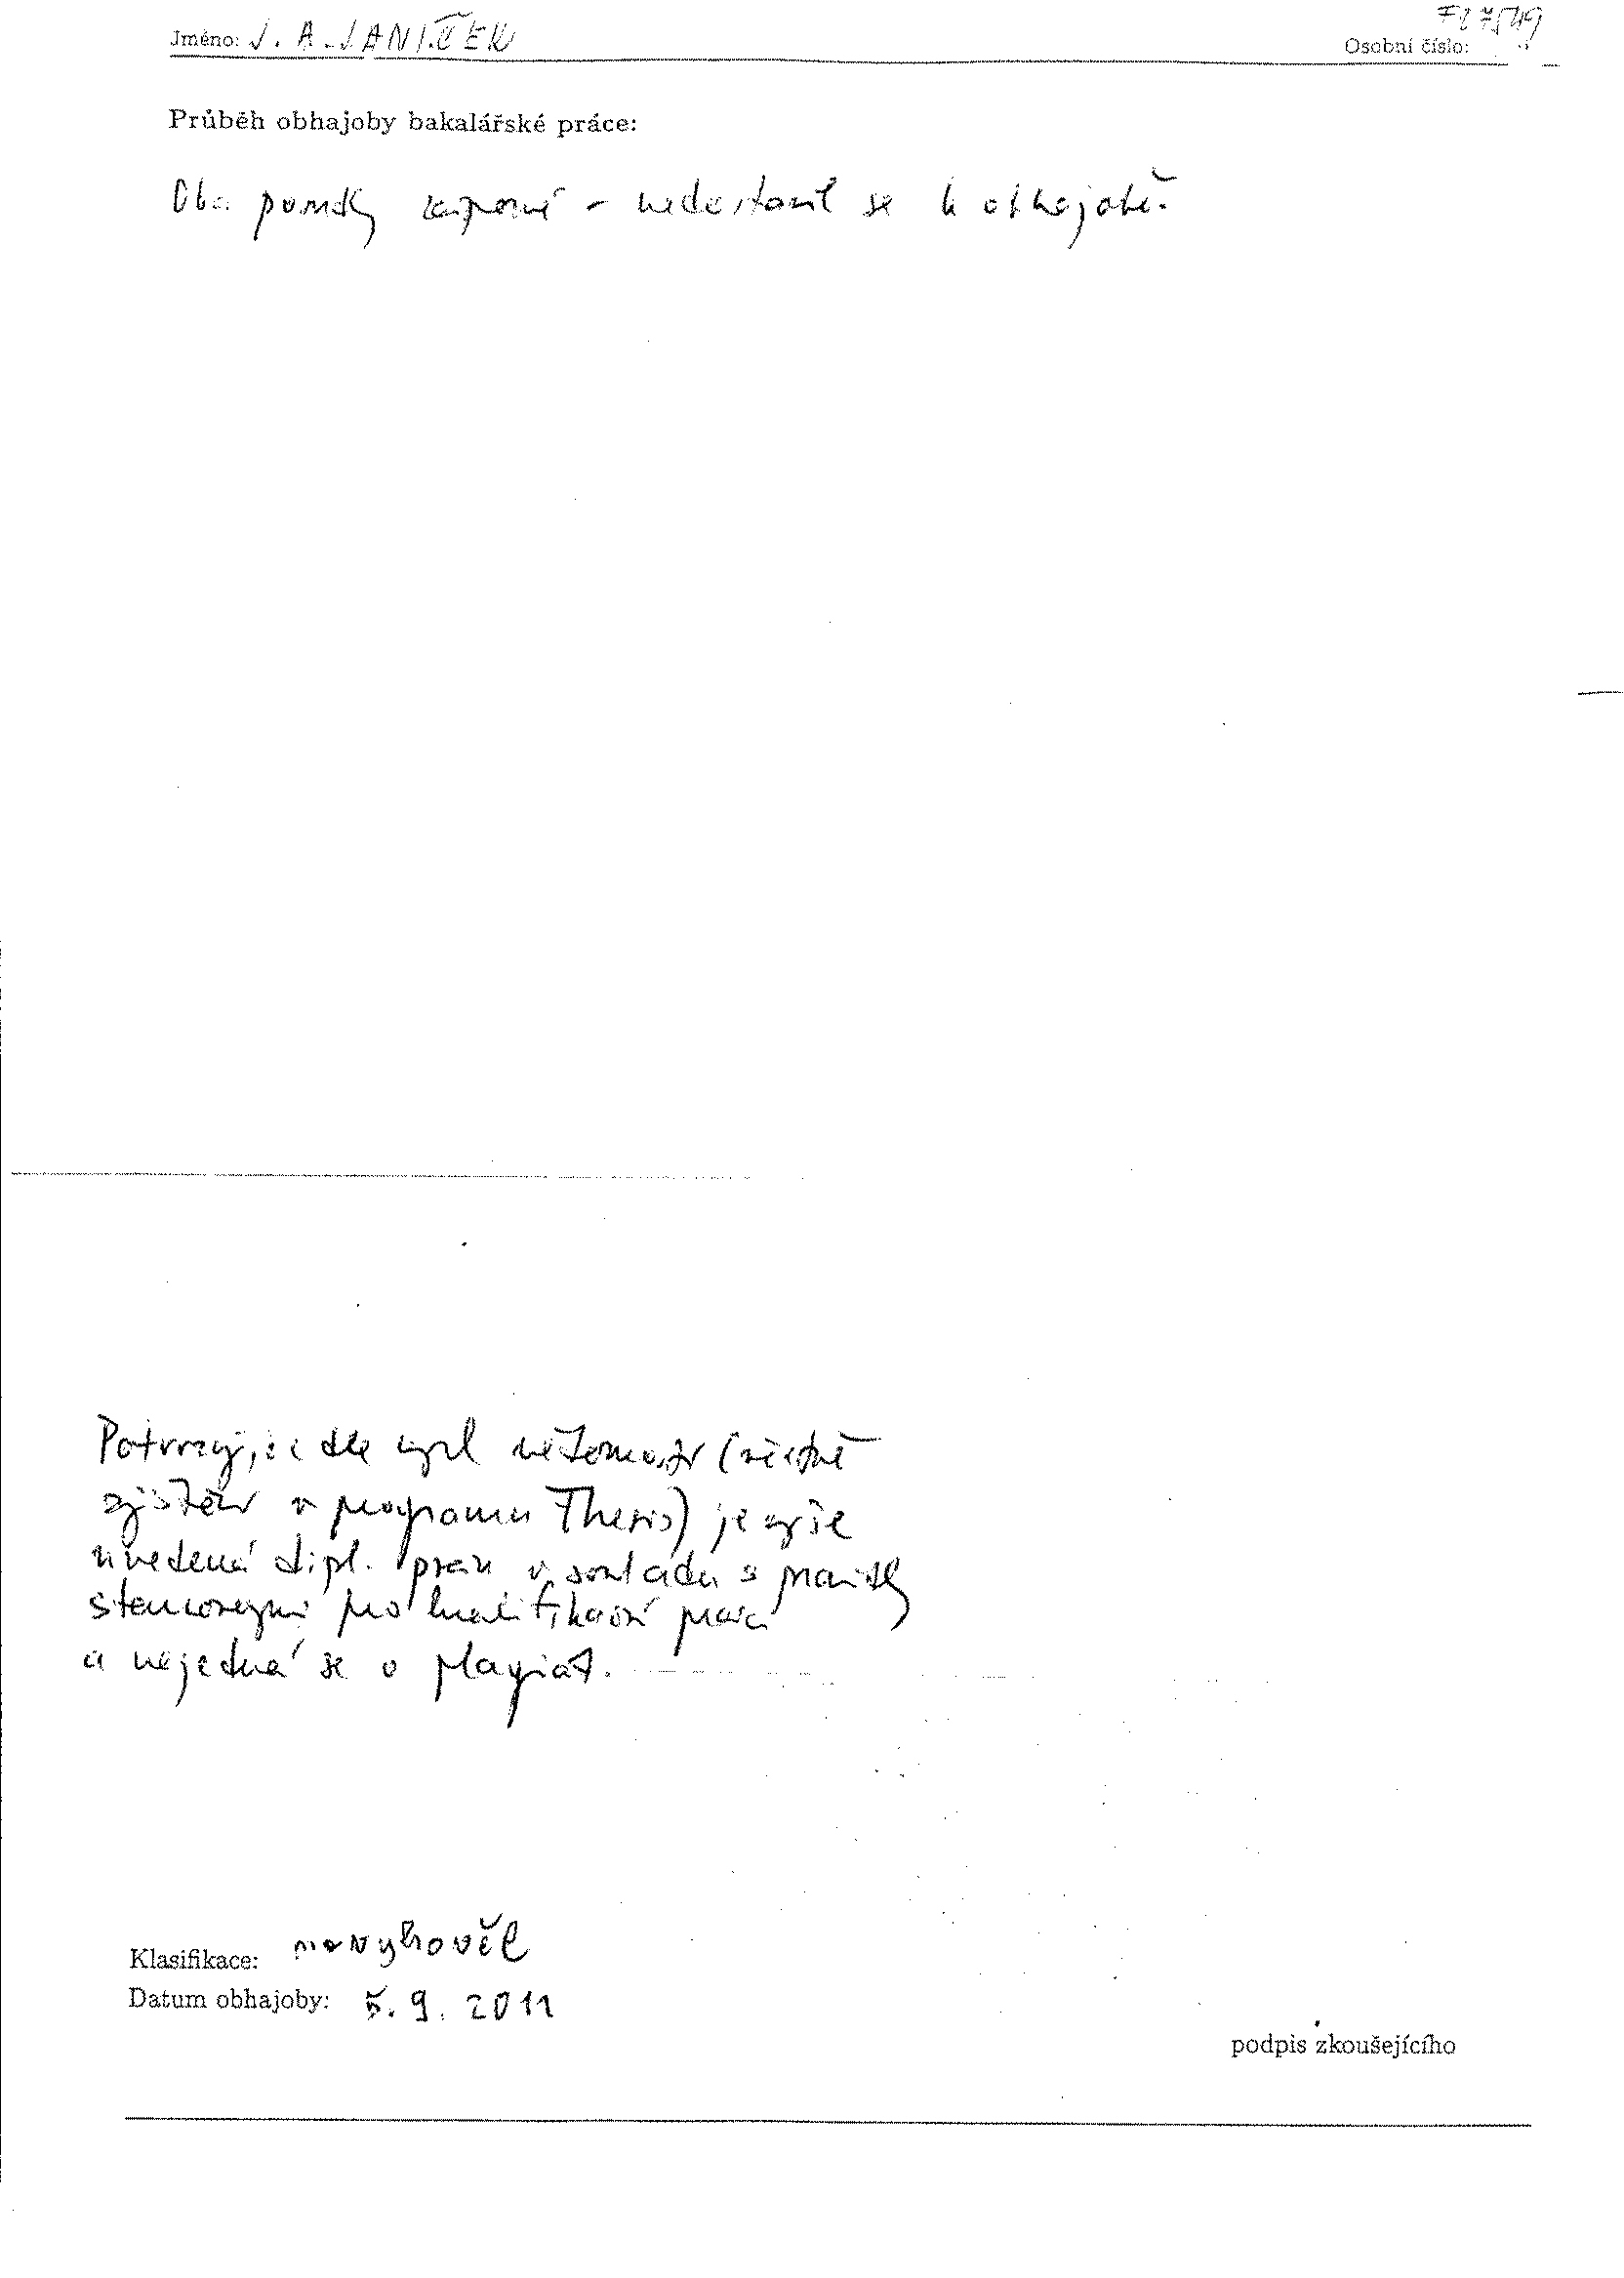 Jméno: J. A. JANÍČEK Osobní číslo:
Průběh obhajoby bakalářské práce:
Oba posudky záporné - nedostavil se k obhajobě.
Potvrzuji, že dle mých vědomostí (včetně
zjištění v programu Thesis) je výše
uvedená dipl. práce v souladu s pravidly
stanovenými pro kvalifikační práci
a nejedná se o plagiát.
Klasifikace: nevyhověl
Datum obhajoby: 5. 9. 2011
podpis zkoušejícího